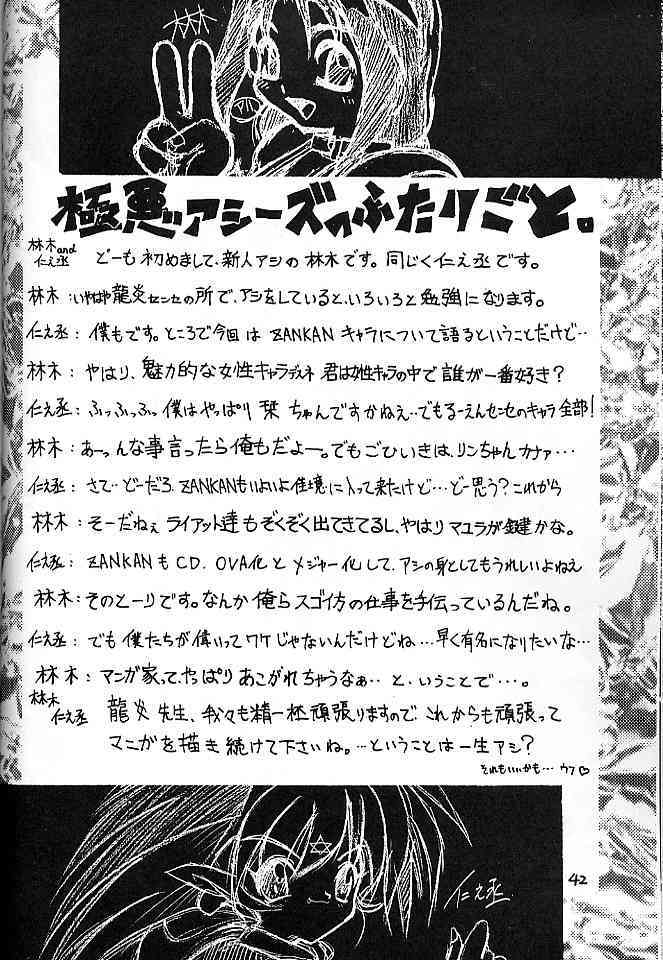 林木
極悪アシーズのふたりごと。
林木and仁え丞 どーも初めまして、新人アシの林木です。同じく仁え丞です。
林木：いやはや龍炎センセの所で、アシをしていると、いろいろと勉強になります。
仁え丞：僕もです。ところで今回はZANKANキャラについて語るということだけど…
林木：やはり、魅力的な女性キャラデスネ 君は女性キャラの中で誰が一番好き？
仁え丞：ふっふっふっ僕はやっぱり栞ちゃんですかねえ…でもるーえんセンセのキャラ全部！
林木：あーっんな事言ったら俺もだよー。でもごひいきは、リンちゃんカナァ…
仁え丞：さて…どーだろ、ZANKANもいよいよ佳境に入って来たけど…どー思う？これから
林木：そーだねぇ ライアット達もぞくぞく出てきてるし、やはりマユラが鍵かな。
仁え丞：ZANKANもCD、OVA化とメジャー化して、アシの身としてもうれしいよねえ
林木：そのとーりです。なんか俺らスゴイ方の仕事を手伝っているんだね。
仁え丞：でも僕たちが偉いってワケじゃないんだけどね…早く有名になりたいな…
林木：マンガ家って、やっぱりあこがれちゃうなぁ…と、いうことで…。
林木 仁え丞 龍炎先生、我々も精一杯頑張りますので、これからも頑張って
マンガを描き続けて下さいね。…ということは一生アシ？
それもいいかも… ウフ♡
仁え丞
42